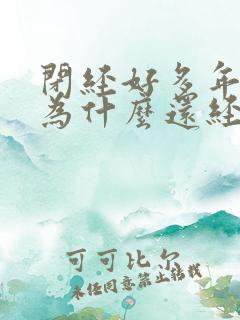 閉經好多年
為什麼還經
可可比尔
未经同意禁止转载